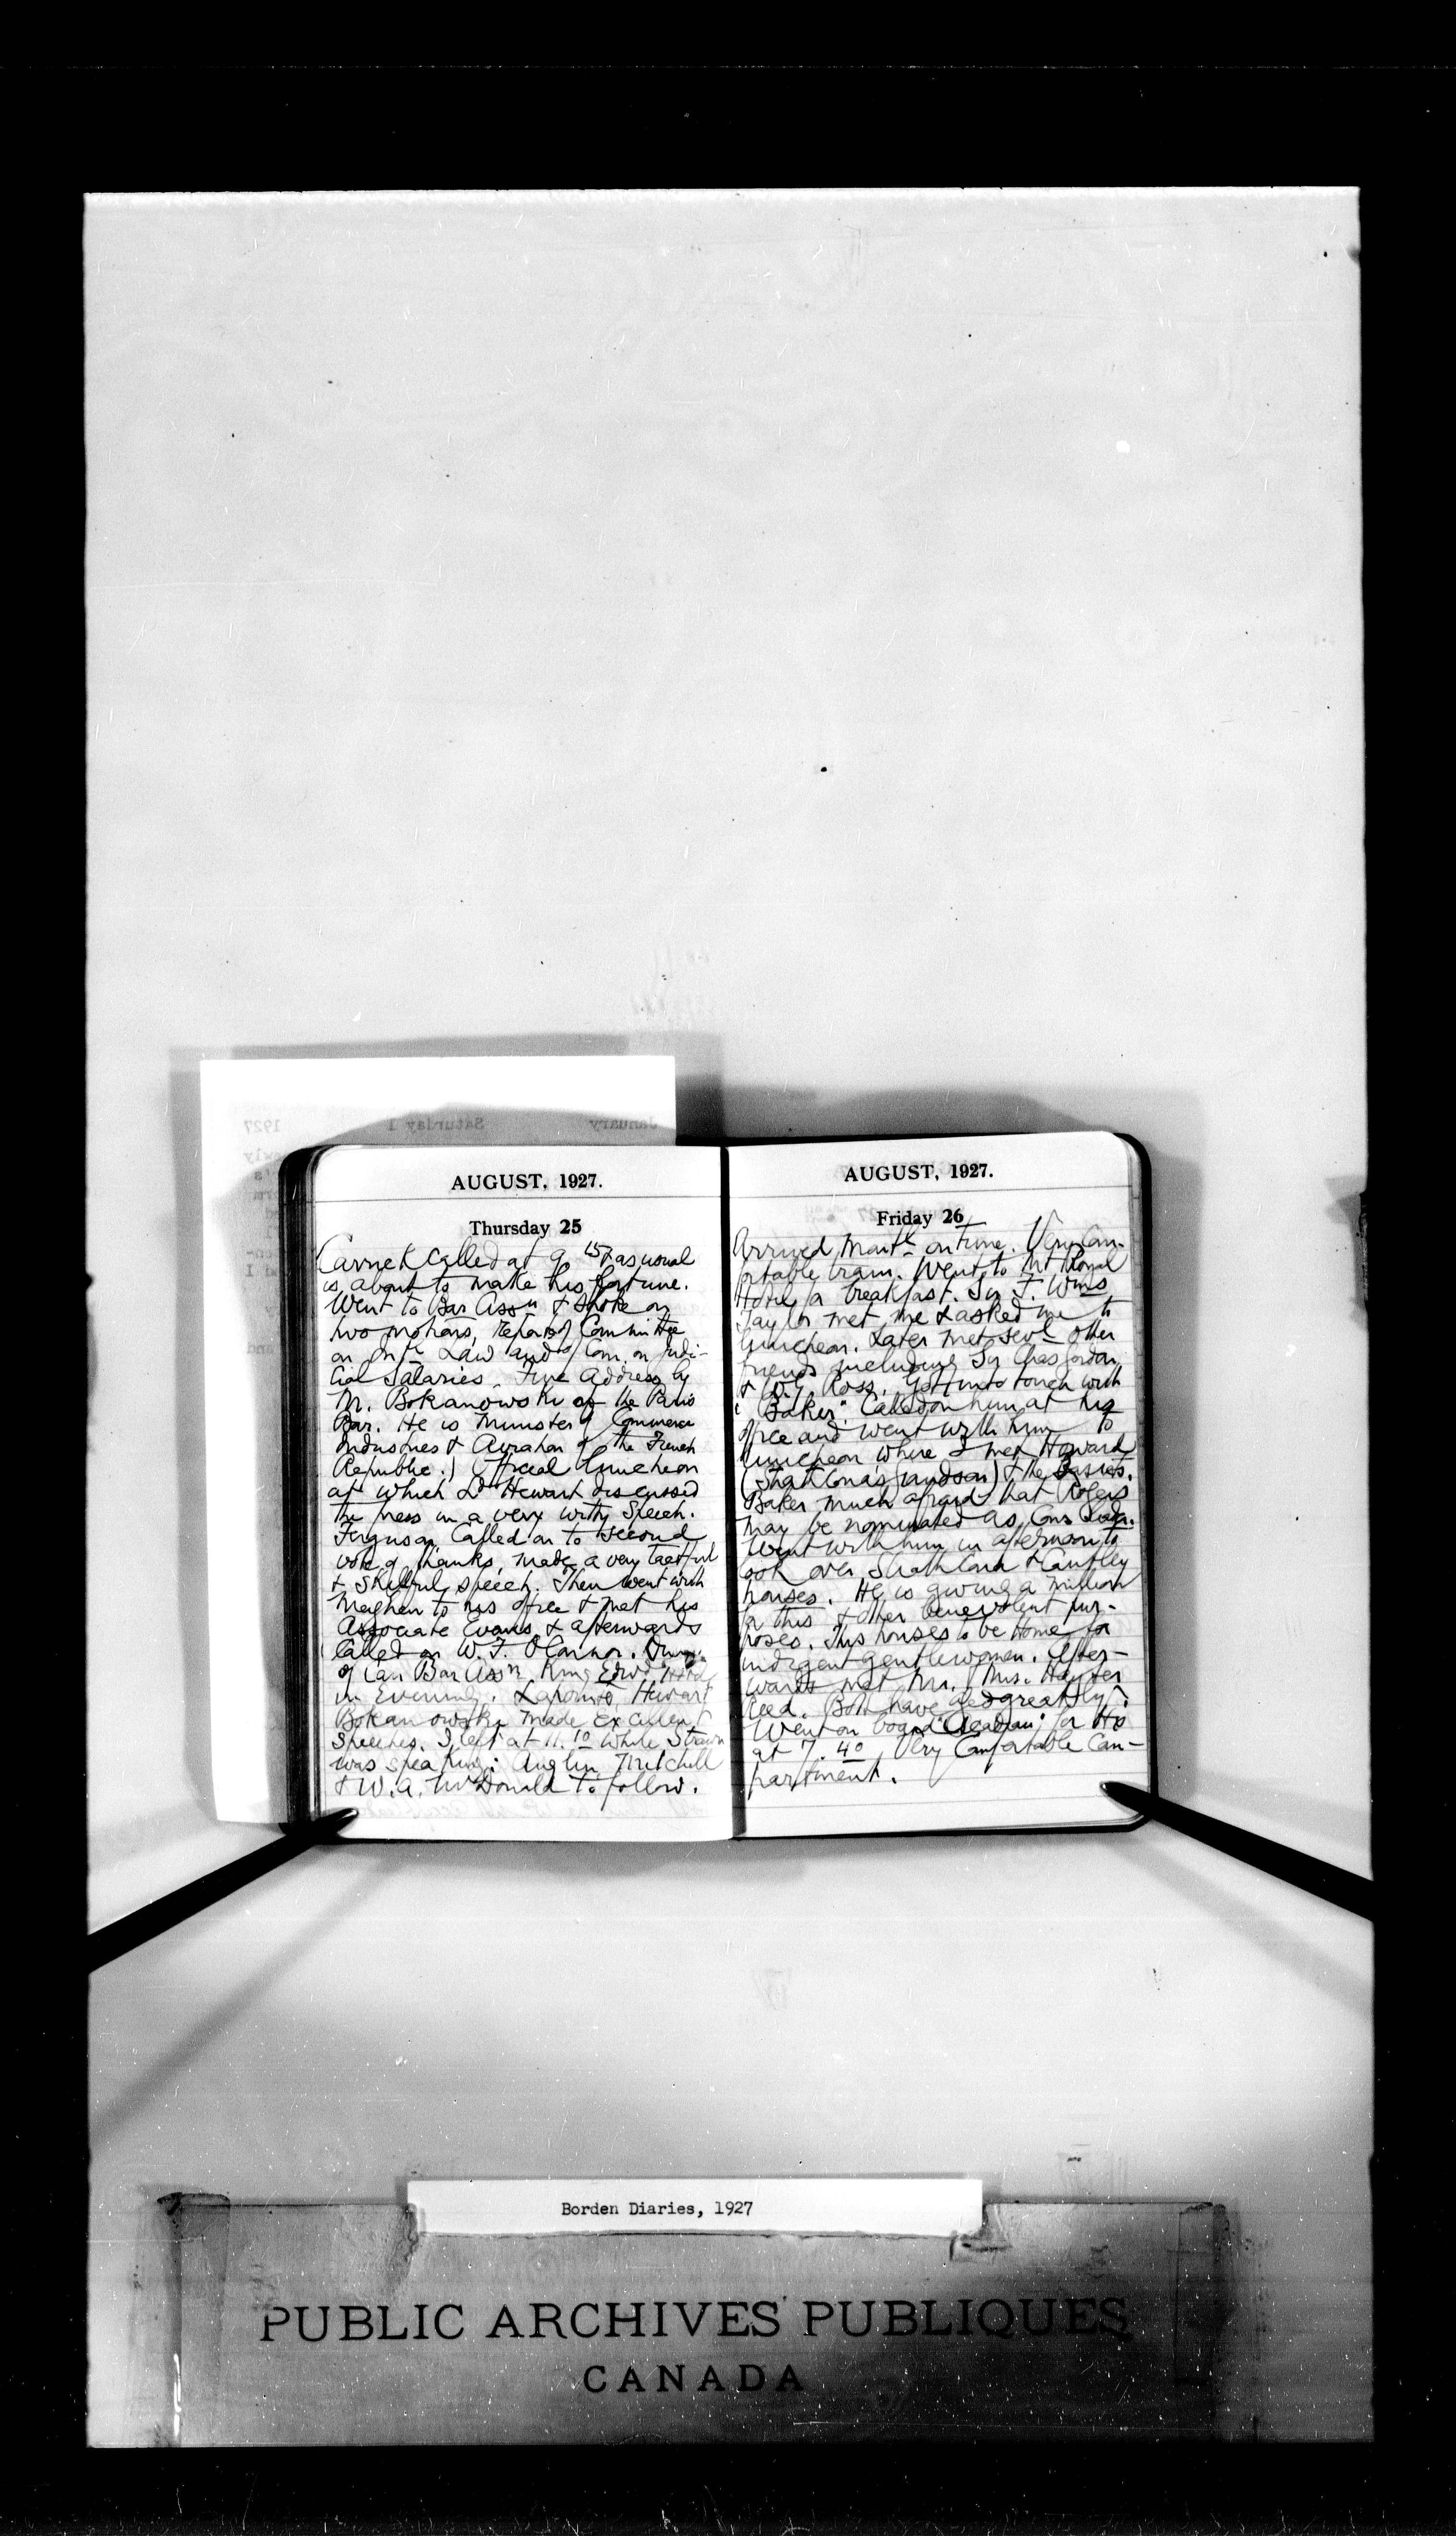 January Saturday 1 1927
AUGUST, 1927.
Thursday 25
Carrick called at 9.15 & as usual
is about to make his fortune.
Went to Bar Assn & spoke on
two motions, report of Committee
on Intl Law and of Com. on Judi-
cial Salaries. Fine Address by
M. Bokanowski of the Paris
Bar. He is Minister of Commerce
Industries & Aviation of the French
Republic.) Official luncheon
at which Ld Hewart discussed
the press in a very witty speech.
Ferguson called on to second
vote of thanks, made a very tactful
& skilful speech. Then went with
Meighen to his office & met his
Associate Evans & afterwards
Called on W. F. O'Connor. Dinner
of Can Bar Assn King Edwd Hotel
in Evening. Lapointe, Hewart
Bokanowski made excellent
speeches. I left at 11.10 while Strawn
was speaking: Anglin, Mitchell
& W. A. McDonald to follow.
AUGUST, 1927.
Friday 26
Arrived Montl on time. Very com-
fortable train. Went to Mt Royal
Hotel for breakfast. Sir F. Wms
Taylor met me & asked me to
luncheon. Later met sevl other
friends including Sir Chas Gordon
& W.G. Ross. Got into touch with
"Baker". Called on him at his
office and went with him to
luncheon where I met Howard
(Strathcona's grandson) & the
Baker much afraid that Rogers
may be nominated as Cons
Went with him in afternoon to
look over Strathcona & Cantley
houses. He is giving a million
for this & other benevolent pur-
poses. This houses to be home for
indigent gentlewomen. After-
wards met Mr. & Mrs. Hayter
Reed. Both have aged greatly.
Went on board "Acadian" for Hx
at 7.40. Very Comfortable Com-
partment.
Borden Diaries, 1927
PUBLIC ARCHIVES PUBLIQUES
CANADA